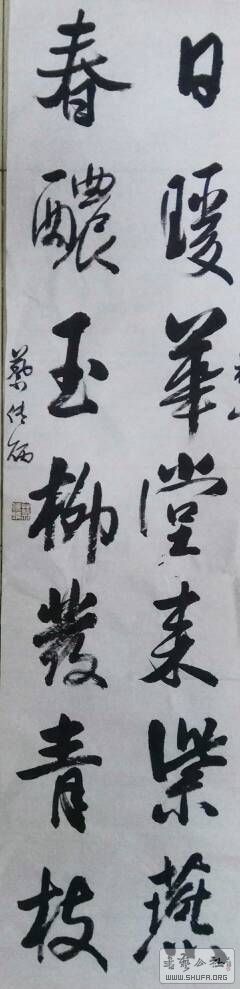 日暖華堂来紫燕
春醲玉柳發青枝
書藝公社
WWW.SHUFA.ORG